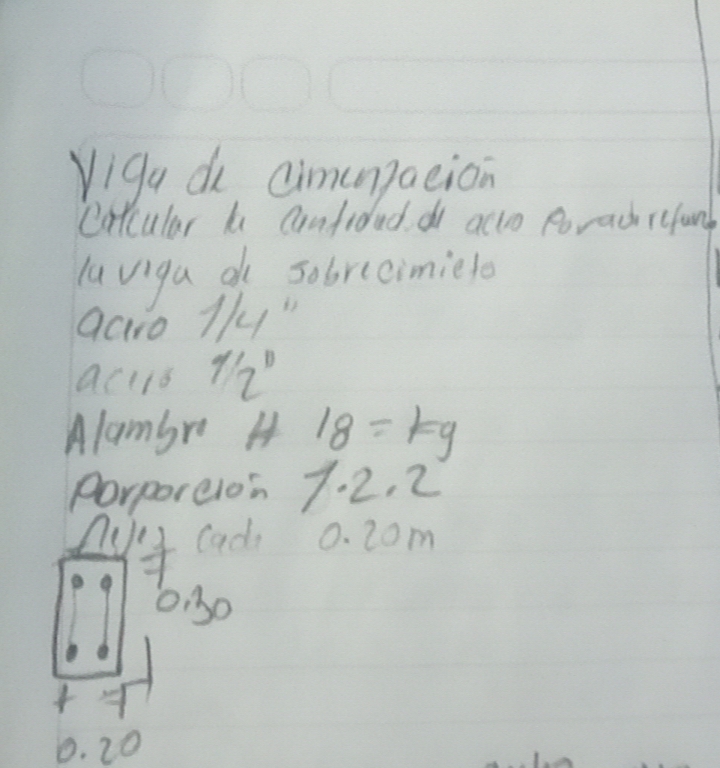 Viga de cimentación
Calcular la cantidad de acero para
la viga de sobrecimieto
acero 1/4"
acero 1/2"
Alambre # 18 = kg
porporción 1.2.2
cada 0.20m
0.30
0.20